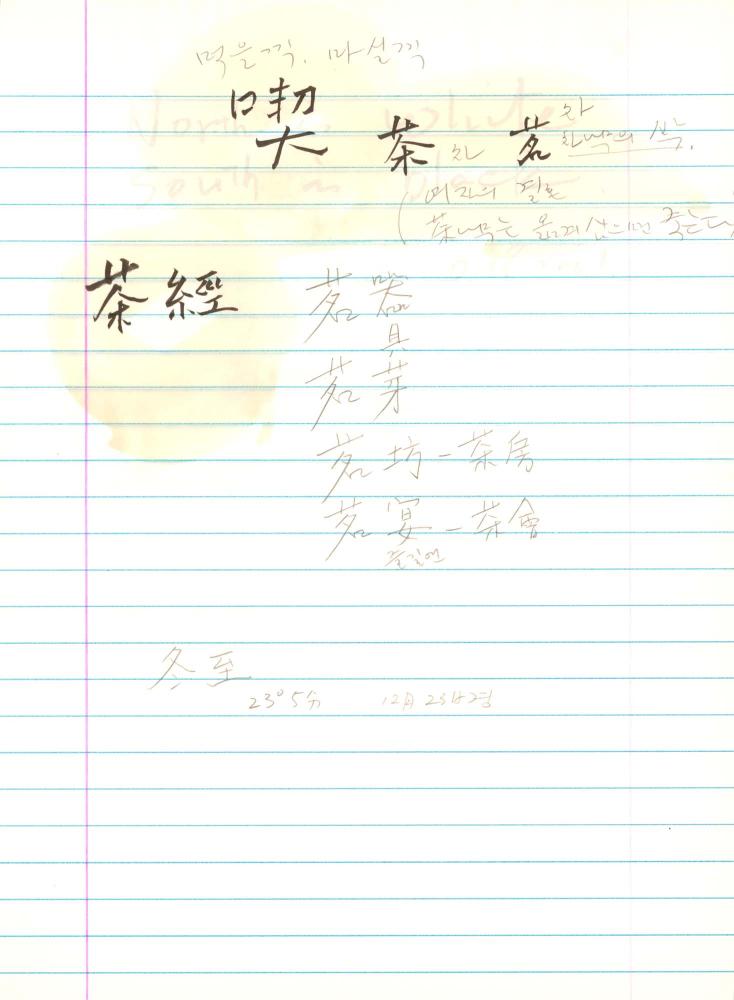 먹을끽. 마실끽
喫 茶 茗 차
차 차나무의 싹.
여자의 결혼
茶나무는 옮겨 심으면 죽는다
茶經 茗器
具
茗芽
茗坊-茶房
茗宴-茶會
즐길연
冬至
23°5分 12月23日경